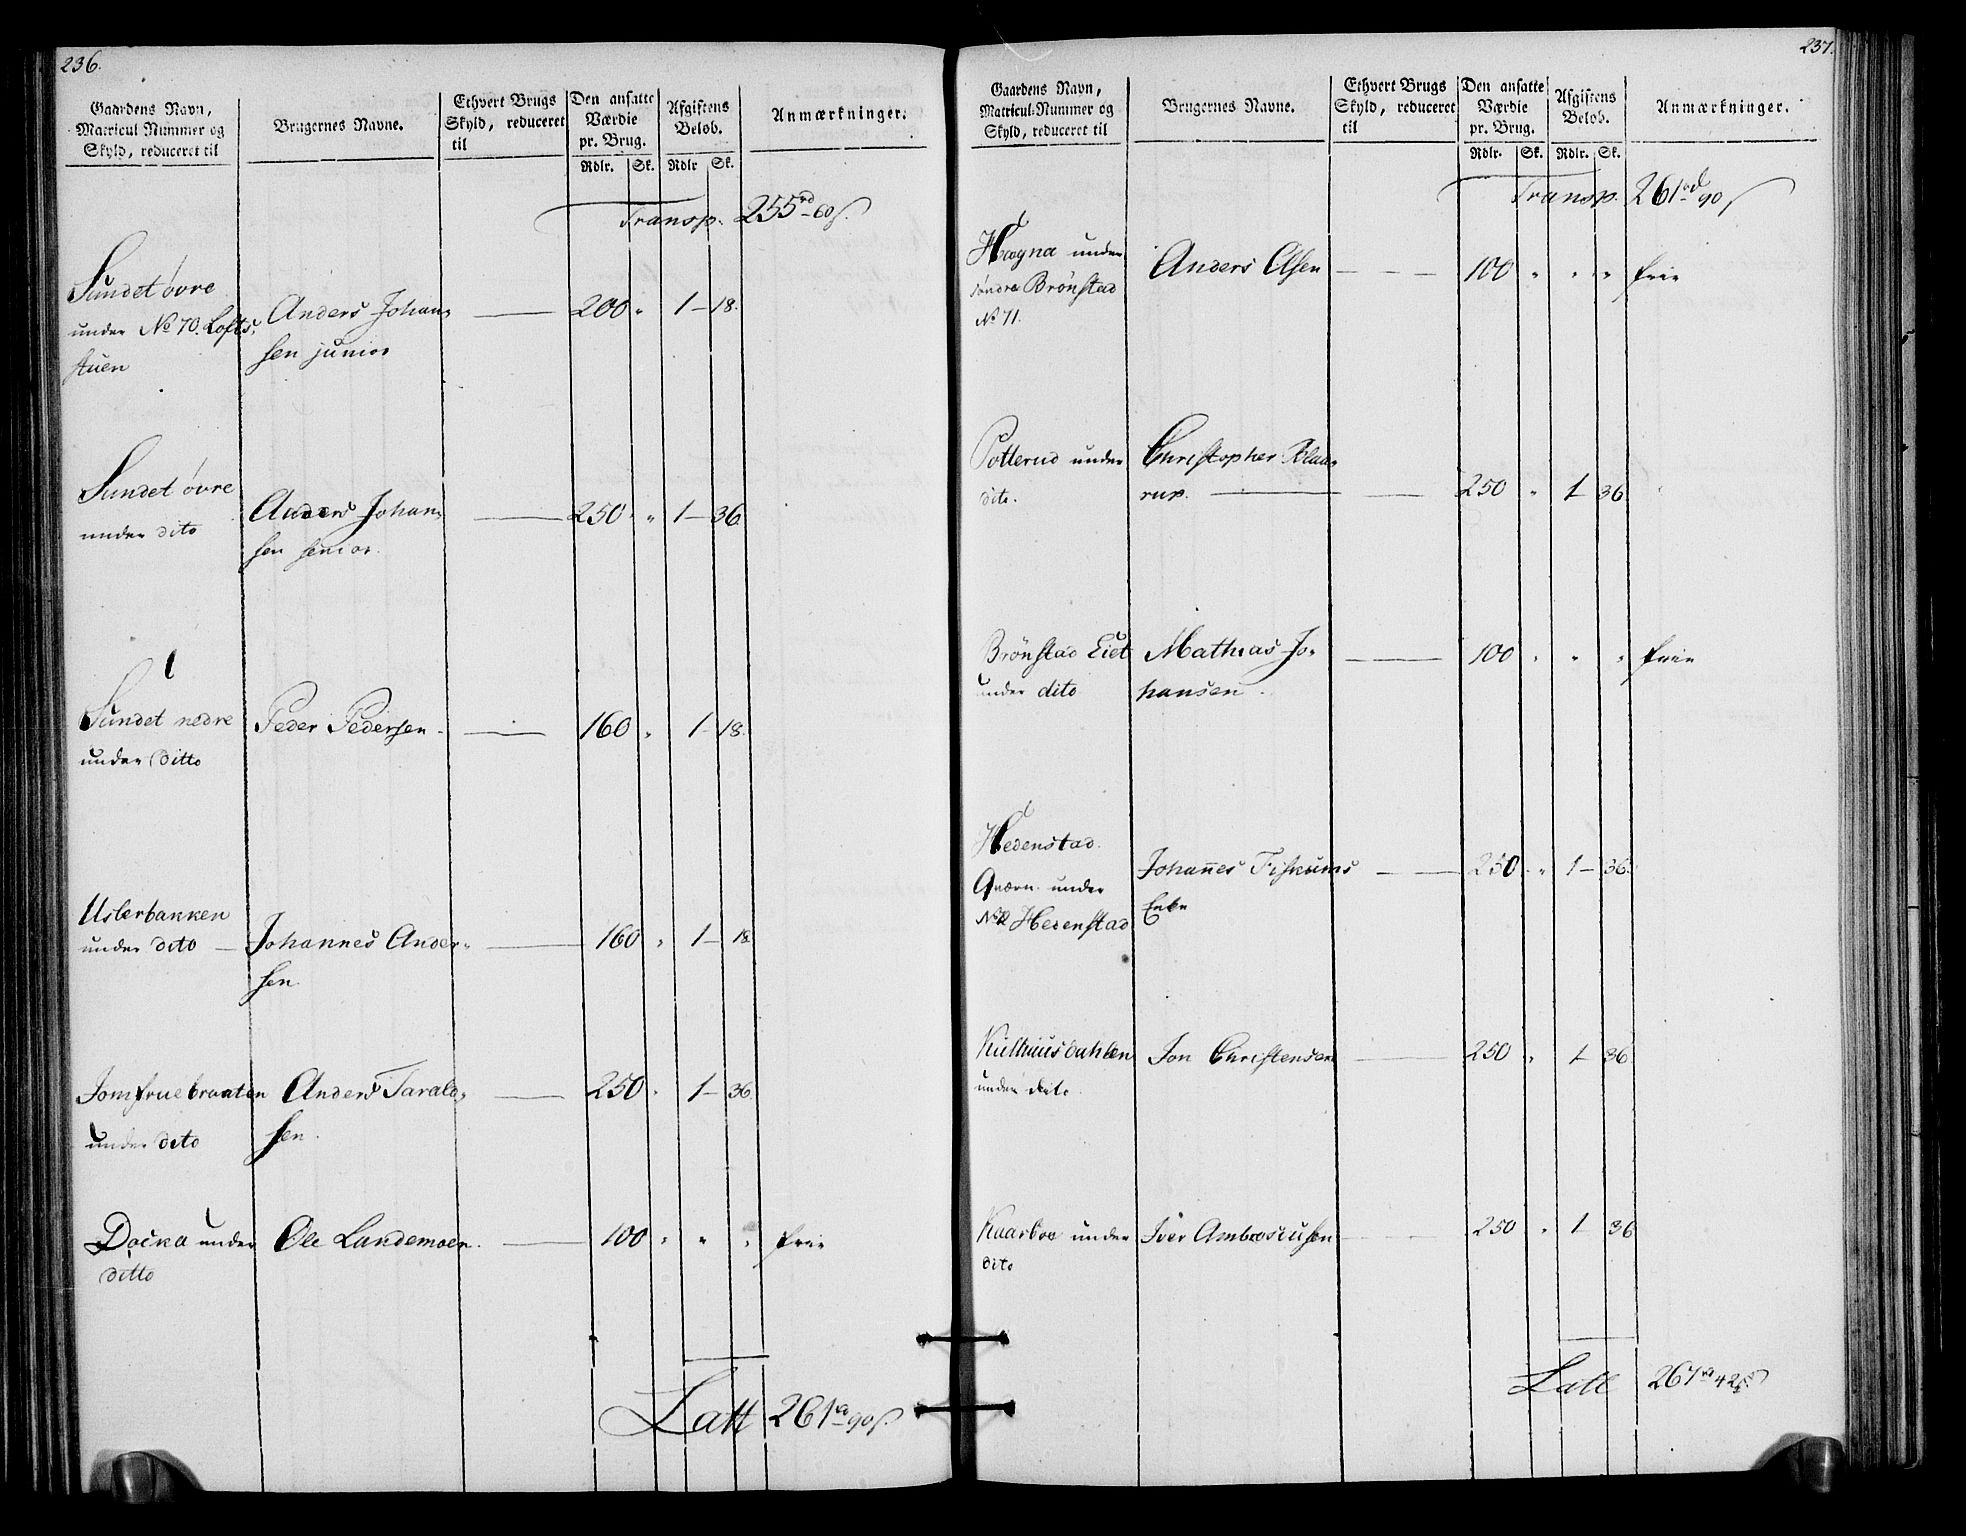 236.
Gaardens Navn, Matricul Nummer og Skyld, reduceret til | Brugernes Navne. | Ethvert Brugs Skyld, reduceret til | Den ansatte Værdie pr. Brug. Rdlr. Sk. | Afgiftens Beløb. Rdlr Sk. | Anmærkninger.
Transp. 255rd 60s.
Sundet øvre
under No 70. Lofts- Anders Johan- — 200 " 1 – 18.
stuen sen junior
Sundet øvre
under dito Anders Johan- — 250 " 1 – 36.
sen senior.
Sundet nedre Peder Pedersen. — 160 " 1 – 18.
under Ditto
Usterbakken
under dito — Johannes Ander- — 160 " 1 – 18
sen.
Jomfruebraaten Anders Tarald- — 250 " 1 – 36.
under dito sen.
Docka under Ole Landemoen. — 100 " " " frie
ditto
Latt 261rd 90s.
237.
Gaardens Navn, Matricul-Nummer og Skyld, reduceret til | Brugernes Navne. | Ethvert Brugs Skyld, reduceret til | Den ansatte Værdie pr. Brug. Rdlr. Sk. | Afgiftens Beløb. Rdlr. Sk. | Anmærkninger.
Transp. 261rd 90s
Hægna under Anders Olsen — 100 " " " frie
søndre Brønstad
No 71.
Potterud under Christopher Blaa-
dito. rup. — 250 " 1 36.
Brønstad Eiet Mathias Jo- — 100 " " " frie
under dito hansen.
Hedenstad.
Qværn under Johannes Fiskums — 250 " 1 – 36.
No 72 Hedenstad Enke
Kulhuusdahlen Jon Christensen — 250 " 1 36
under dito.
Kaarboe under Iver Ambrosiusen — 250 " 1 36
dito
Latt 267rd 42s.